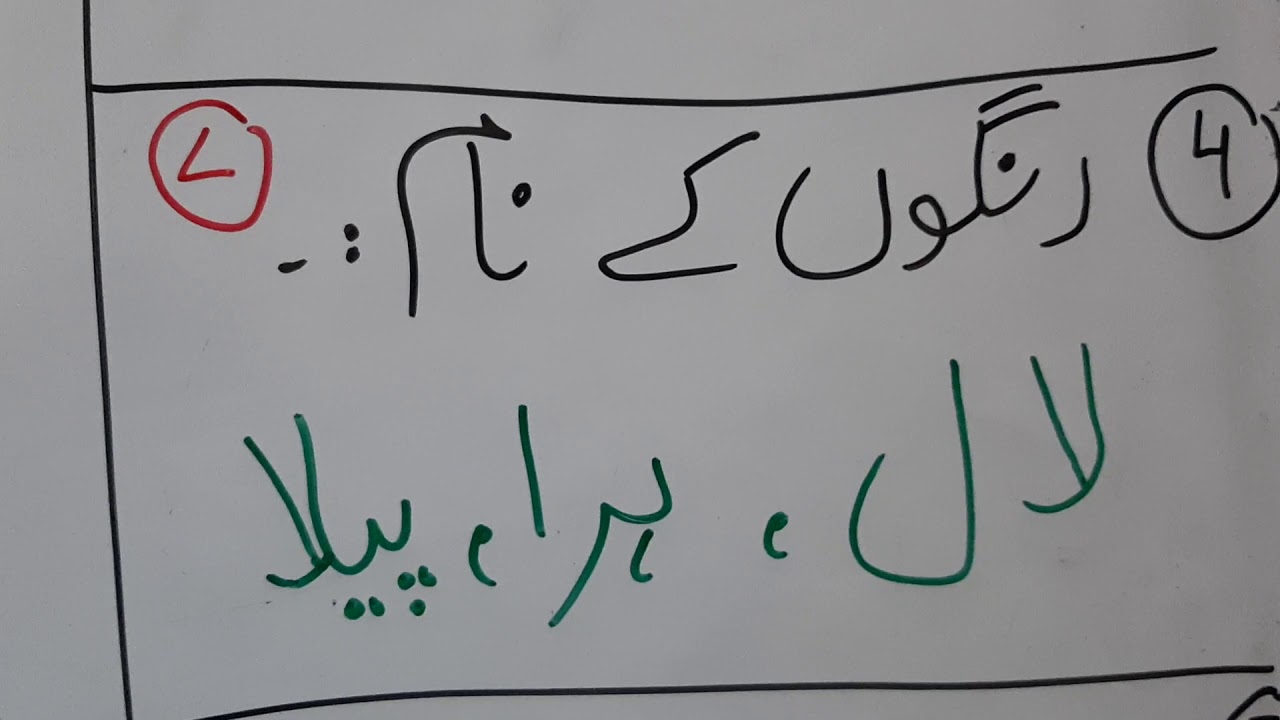 4 رنگوں کے نام :-
لال ، ہرا ، پیلا